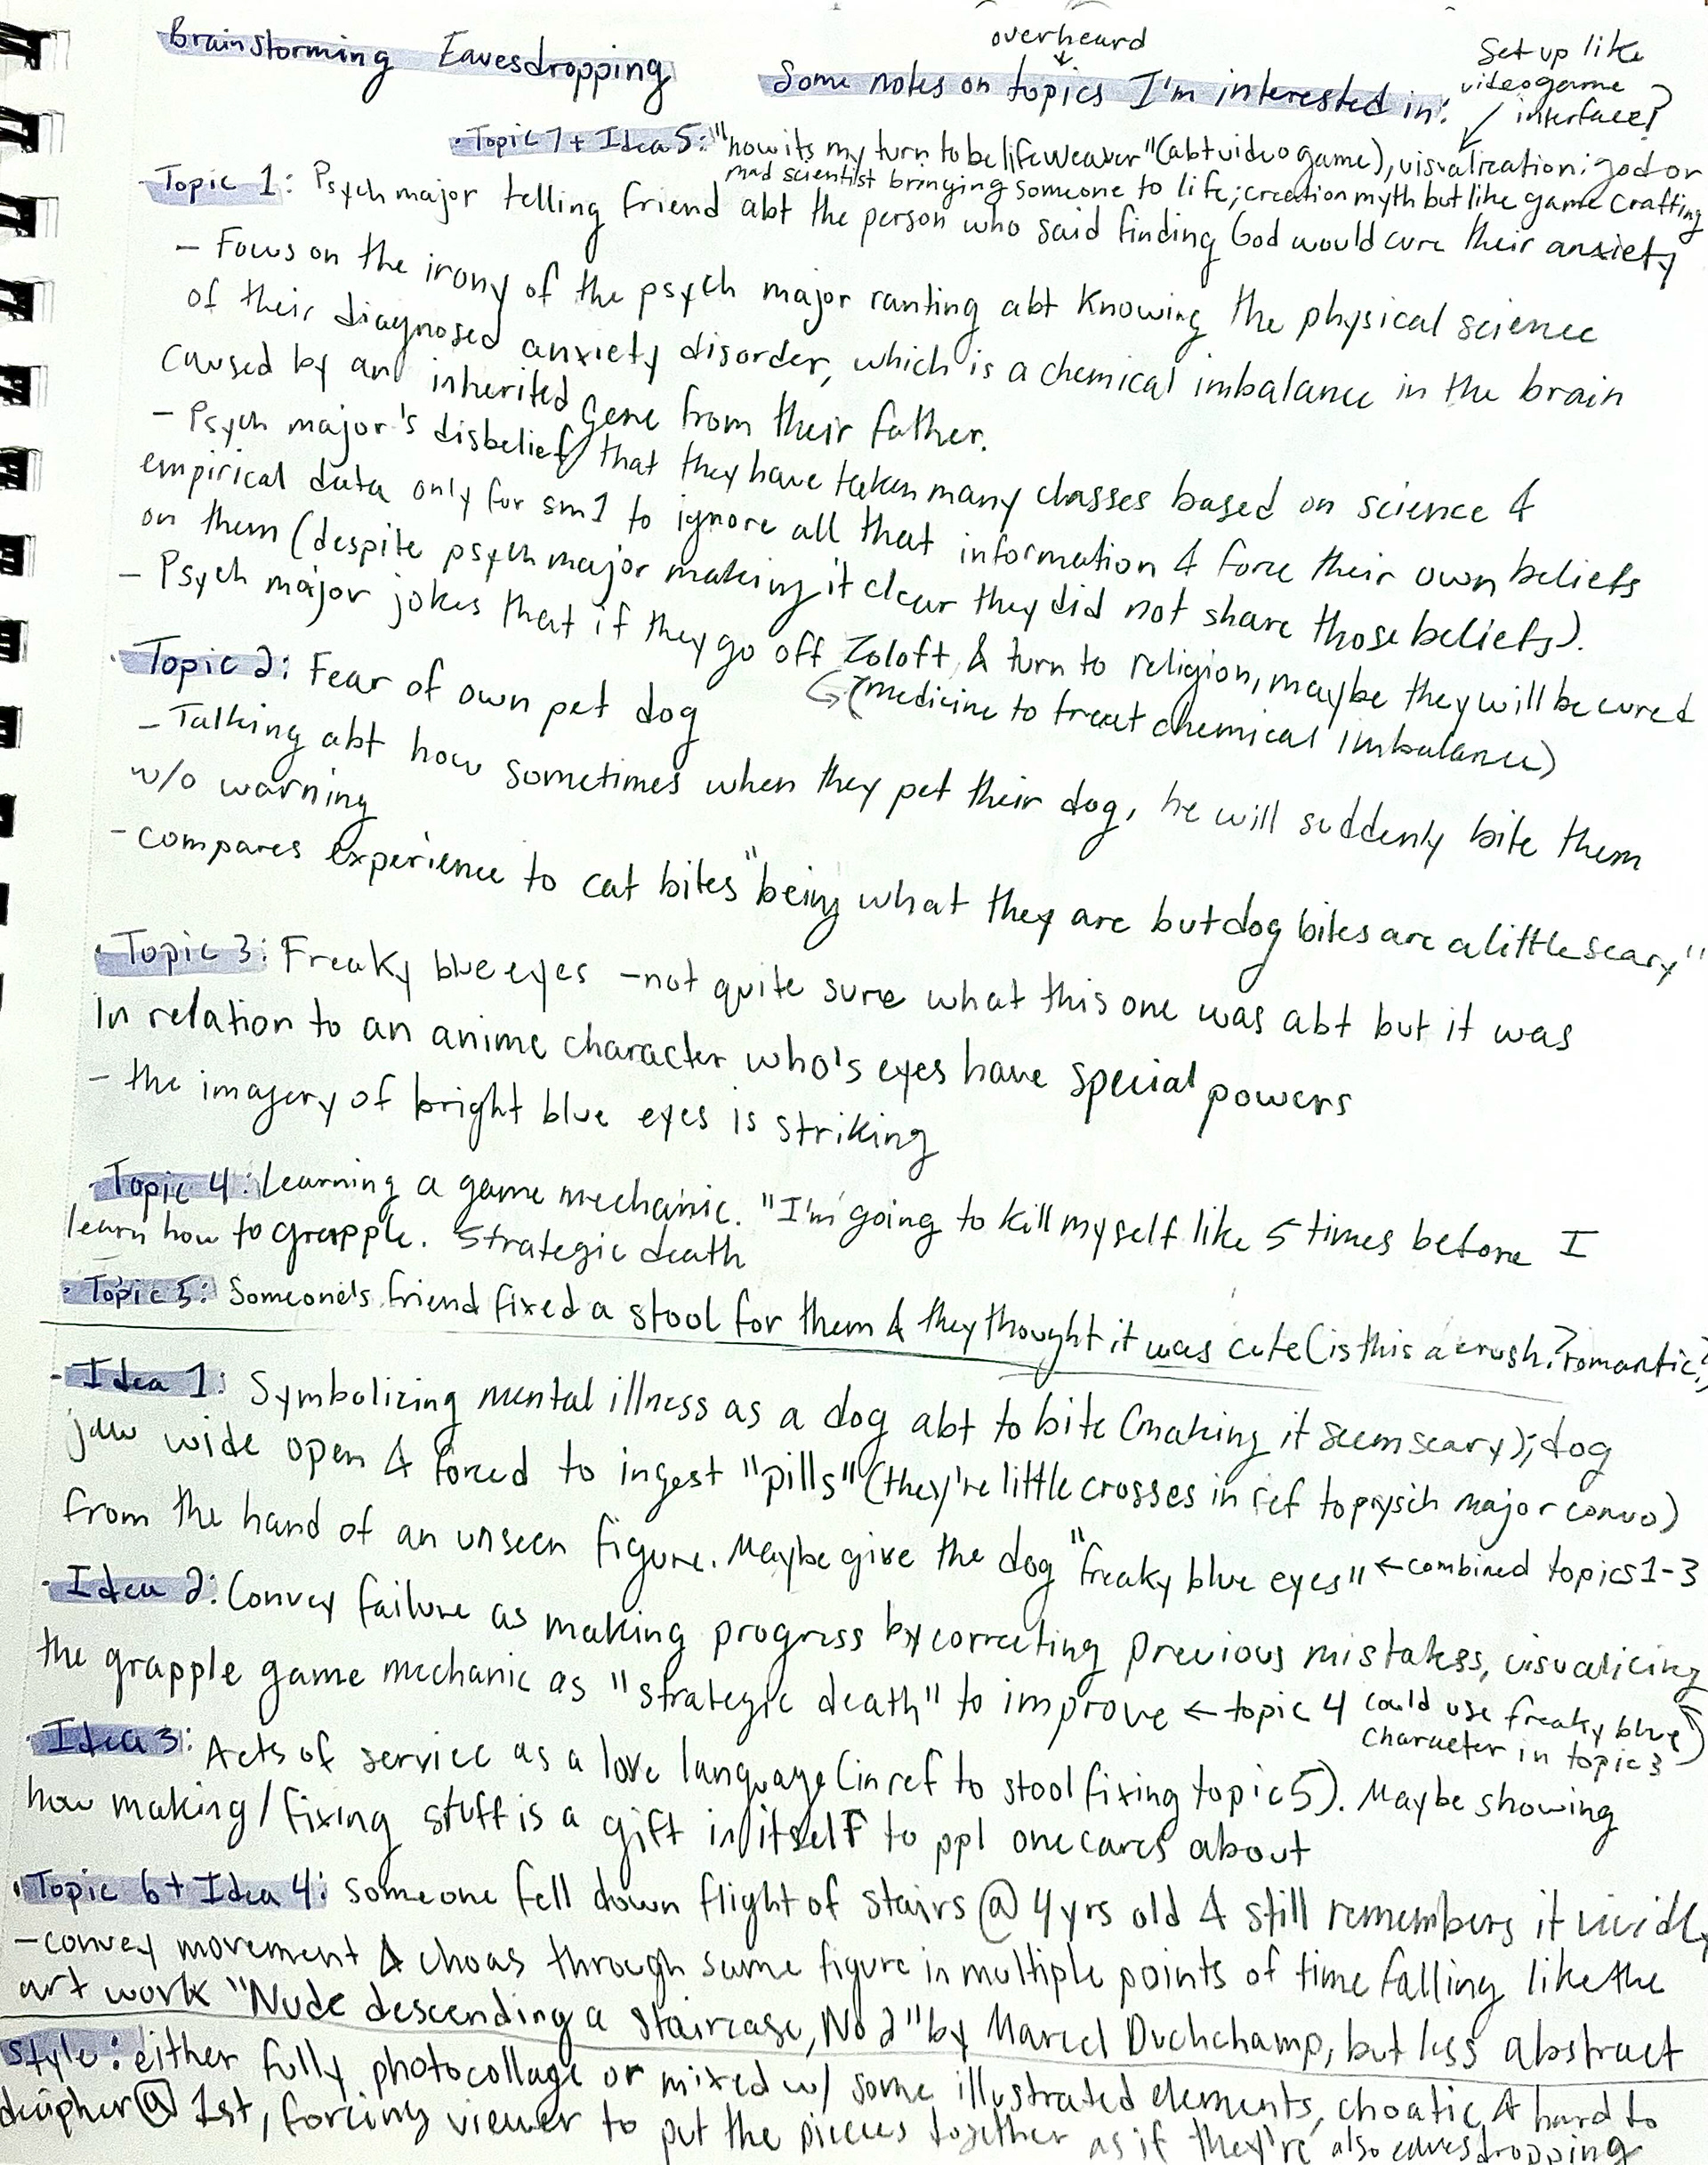 Brainstorming Eavesdropping
overheard
Some notes on topics I'm interested in:
Set up like
videogame
interface?
· Topic 7 + Idea 5: "now its my turn to be lifeweaver" (abt video game), visualization: god or
mad scientist bringing someone to life; creation myth but like game crafting
· Topic 1: Psych major telling friend abt the person who said finding God would cure their anxiety
- Focus on the irony of the psych major ranting abt knowing the physical science
of their diagnosed anxiety disorder, which is a chemical imbalance in the brain
caused by an inherited gene from their father.
- Psych major's disbelief that they have taken many classes based on science &
empirical data only for sm1 to ignore all that information & force their own beliefs
on them (despite psych major making it clear they did not share those beliefs).
- Psych major jokes that if they go off Zoloft & turn to religion, maybe they will be cured
(medicine to treat chemical imbalance)
· Topic 2: Fear of own pet dog
- Talking abt how sometimes when they pet their dog, he will suddenly bite them
w/o warning
- compares experience to cat bites "being what they are but dog bites are a little scary"
· Topic 3: Freaky blue eyes - not quite sure what this one was abt but it was
In relation to an anime character who's eyes have special powers
- the imagery of bright blue eyes is striking
· Topic 4: Learning a game mechanic. "I'm going to kill myself like 5 times before I
learn how to grapple. Strategic death
· Topic 5: Someone's friend fixed a stool for them & they thought it was cute (is this a crush? romantic?)
- Idea 1: Symbolizing mental illness as a dog abt to bite (making it seem scary); dog
jaw wide open & forced to ingest "pills" (they're little crosses in ref to pysch major convo)
from the hand of an unseen figure. Maybe give the dog "freaky blue eyes" ← combined topics 1-3
· Idea 2: Convey failure as making progress by correcting previous mistakes, visualizing
the grapple game mechanic as "strategic death" to improve ← topic 4 could use freaky blue
character in topic 3
· Idea 3: Acts of service as a love language (in ref to stool fixing topic 5). Maybe showing
how making/fixing stuff is a gift in itself to ppl one cares about
· Topic 6 + Idea 4: Someone fell down flight of stairs @ 4 yrs old & still remembers it vividly
- convey movement & choas through same figure in multiple points of time falling like the
art work "Nude descending a staircase, No 2" by Marcel Duchchamp, but less abstract
Style: either fully photocollage or mixed w/ some illustrated elements, choatic & hard to
decipher @ 1st, forcing viewer to put the pieces together as if they're also eavesdropping